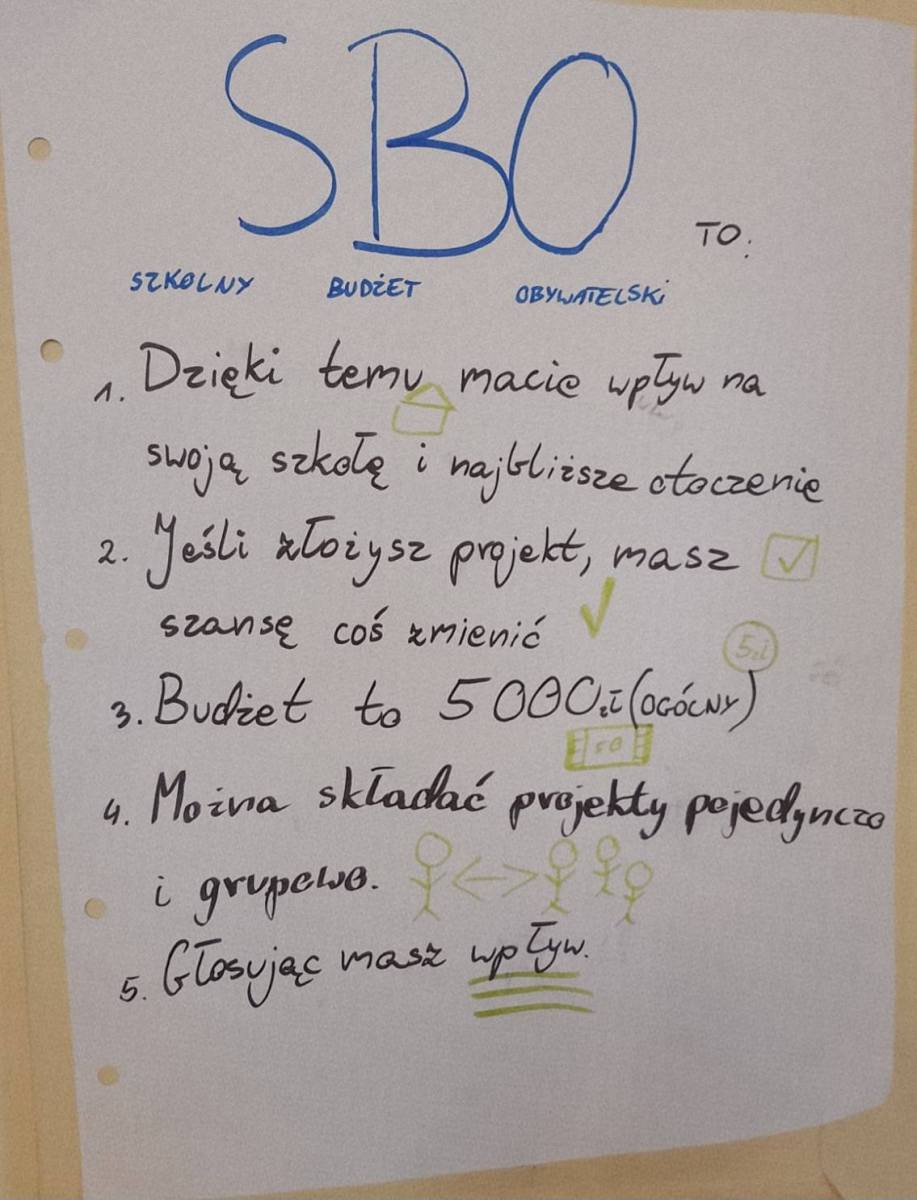 SBO TO:
SZKOLNY BUDŻET OBYWATELSKI
1. Dzięki temu macie wpływ na
swoją szkołę i najbliższe otoczenie
2. Jeśli złożysz projekt, masz
szansę coś zmienić
5zł
3. Budżet to 5000zł (OGÓLNY)
50
4. Można składać projekty pojedynczo
i grupowo.
5. Głosując masz wpływ.